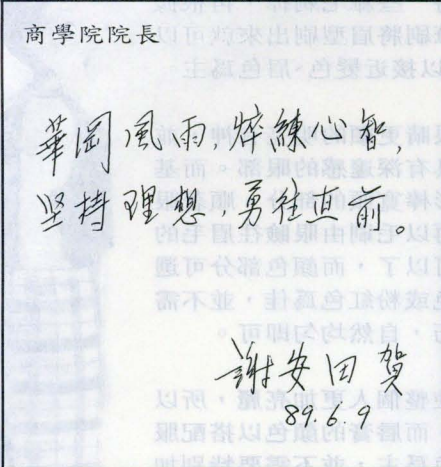 商學院院長
華岡風雨,淬練心智,
坚持理想,勇往直前。
謝安田賀
89.6.9